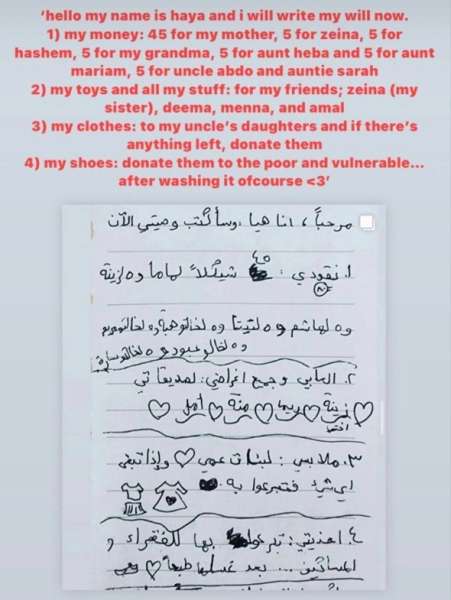 ‘hello my name is haya and i will write my will now.
1) my money: 45 for my mother, 5 for zeina, 5 for
hashem, 5 for my grandma, 5 for aunt heba and 5 for aunt
mariam, 5 for uncle abdo and auntie sarah
2) my toys and all my stuff: for my friends; zeina (my
sister), deema, menna, and amal
3) my clothes: to my uncle’s daughters and if there’s
anything left, donate them
4) my shoes: donate them to the poor and vulnerable...
after washing it ofcourse <3’
مرحباً، انا هيا، وسأكتب وصيتي الآن
٤٥
١. نقودي: شيكلاً لماما و٥ لزينة
و٥ لهاشم و٥ لتيتا و٥ لخالتو هبة و٥ لخالتو مريم
و٥ لخالو عبود و٥ لخالتو سارة
٢. العابي و جمع اغراضي: لصديقاتي
زينة ريما منة أمل
اختي
٣. ملابسي: لبنات عمي وإذا تبقى
اي شيء فتبرعوا به
٤. احذيتي: تبرعوا بها للفقراء و
المساكين... بعد غسلها طبعاً